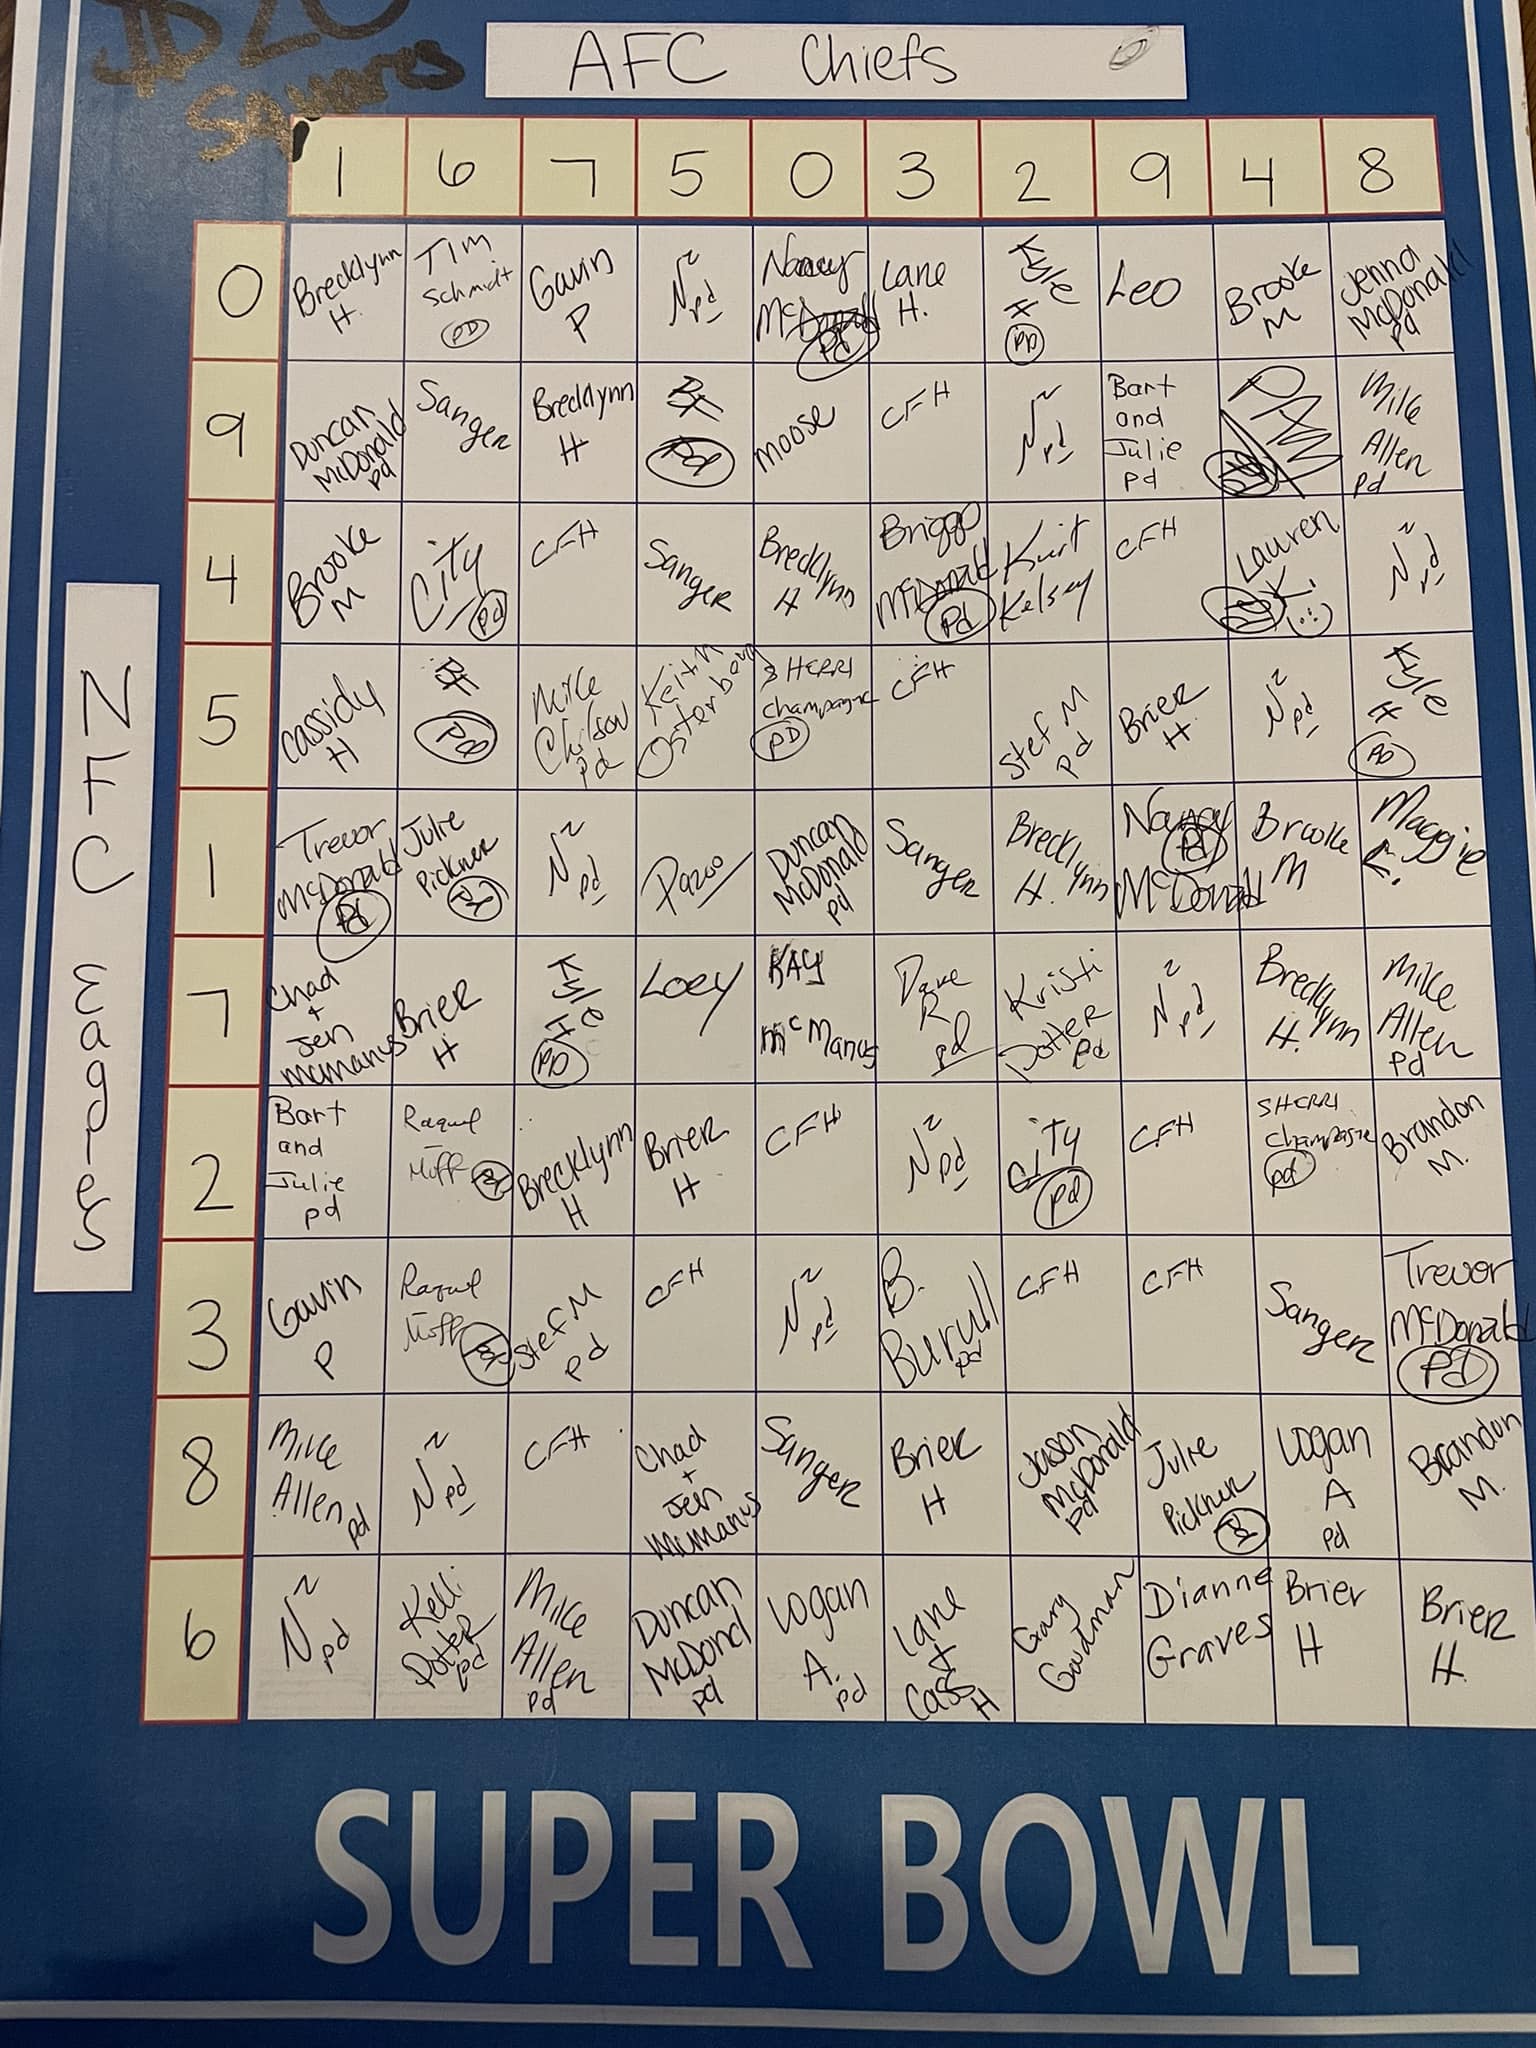 JDZU
Squares
AFC Chiefs
1 6 7 5 0 3 2 9 4 8
NFC Eagles
0 Brecklynn H. Tim Schmidt PD Gavin P N² pd Nancy McDonald Pd Lane H. Kyle H PD Leo Brooke M Jenna McDonald pd
9 Duncan McDonald pd Sanger Brecklynn H BX Pd moose CFH N² pd Bart and Julie pd PAM Mike Allen pd
4 Brooke M City pd CFH Sanger Brecklynn H Briggo McDonald Pd Kurt Kelsey CFH Lauren K! N² pd
5 Cassidy H BX Pd Mike Chilson pd Keith Osterberg SHERRI Champagne PD CFH Stef M pd Brier H N² pd Kyle H PD
1 Trevor McDonald Pd Julie Pickner Pd N² pd Pazoo Duncan McDonald pd Sanger Brecklynn H. Nancy Pd McDonald Brooke M Maggie
7 Chad + Jen McManus Brier H Kyle H PD Loey KAY McManus Dave R pd Kristi Dotter pd N² pd Brecklynn H. Mike Allen pd
2 Bart and Julie pd Raquel Moff Brecklynn H Brier H CFH N² pd City pd CFH SHERRI Champagne pd Brandon M.
3 Gavin P Raquel Moff Stef M pd CFH N² pd B. Burull pd CFH CFH Sanger Trevor McDonald Pd
8 Mike Allen pd N² pd CFH Chad + Jen McManus Sanger Brier H Jason McDonald pd Julie Pickner Logan A pd Brandon M.
6 N² pd Kelli Dotter pd Mike Allen pd Duncan McDond pd Logan A. pd Lane + Cass H Gary Goodman Dianne Graves Brier H Brier H.
SUPER BOWL